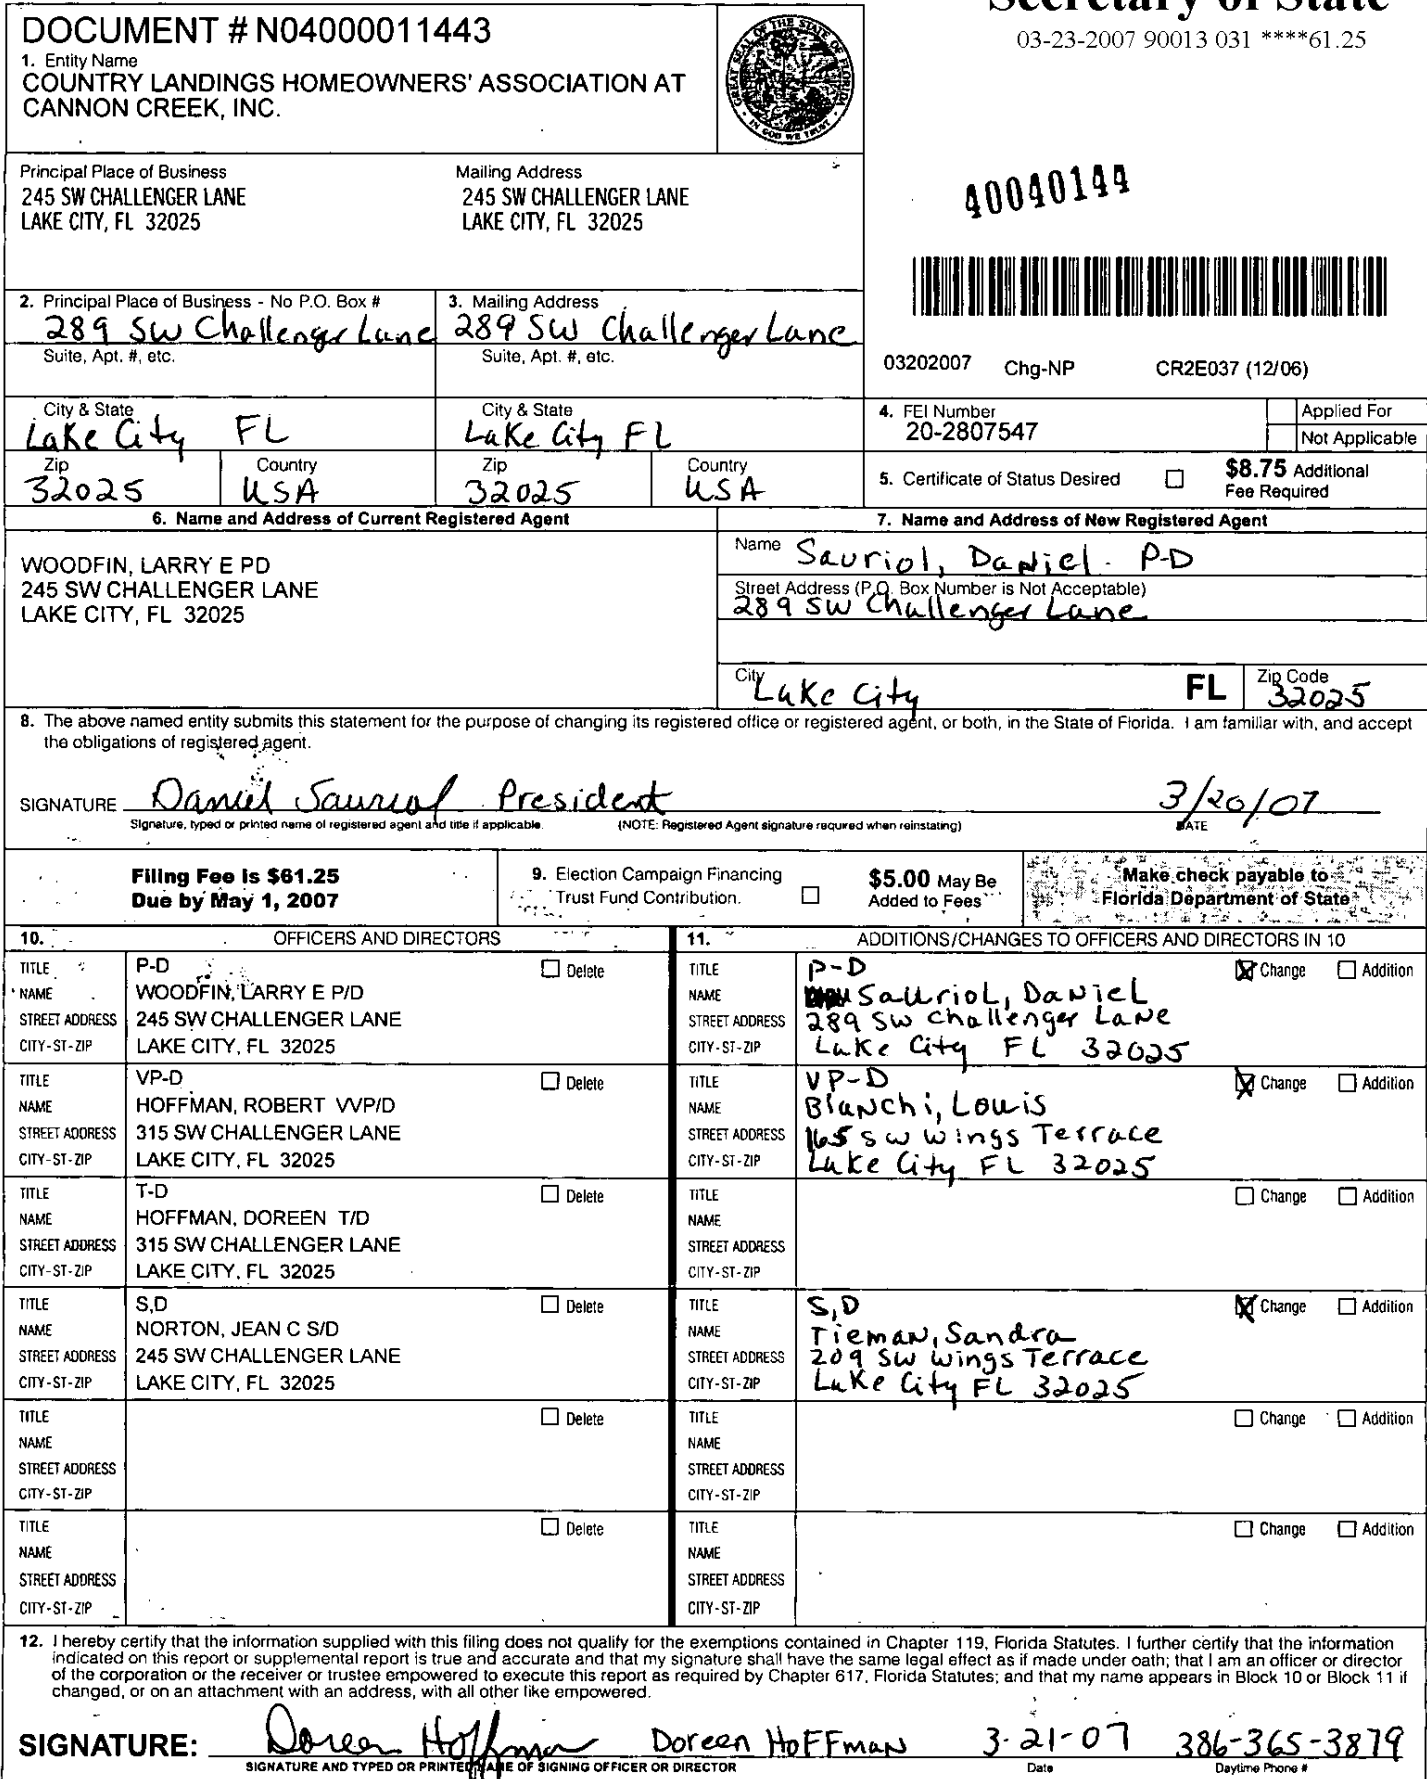 Secretary of State
03-23-2007 90013 031 ****61.25
DOCUMENT # N04000011443
1. Entity Name
COUNTRY LANDINGS HOMEOWNERS' ASSOCIATION AT
CANNON CREEK, INC.
GREAT SEAL OF THE STATE OF FLORIDA
IN GOD WE TRUST
Principal Place of Business
245 SW CHALLENGER LANE
LAKE CITY, FL 32025
Mailing Address
245 SW CHALLENGER LANE
LAKE CITY, FL 32025
40040144
2. Principal Place of Business - No P.O. Box #
289 SW Challenger Lane
Suite, Apt. #, etc.
3. Mailing Address
289 SW Challenger Lane
Suite, Apt. #, etc.
03202007 Chg-NP CR2E037 (12/06)
City & State
Lake City FL
City & State
Lake City FL
4. FEI Number
20-2807547
Applied For
Not Applicable
Zip
32025
Country
USA
Zip
32025
Country
USA
5. Certificate of Status Desired
$8.75 Additional
Fee Required
6. Name and Address of Current Registered Agent
7. Name and Address of New Registered Agent
WOODFIN, LARRY E PD
245 SW CHALLENGER LANE
LAKE CITY, FL 32025
Name Sauriol, Daniel. P-D
Street Address (P.O. Box Number is Not Acceptable)
289 SW Challenger Lane
City Lake City FL Zip Code 32025
8. The above named entity submits this statement for the purpose of changing its registered office or registered agent, or both, in the State of Florida. I am familiar with, and accept
the obligations of registered agent.
SIGNATURE Daniel Sauriol President 3/20/07
Signature, typed or printed name of registered agent and title if applicable. (NOTE: Registered Agent signature required when reinstating) DATE
Filing Fee is $61.25
Due by May 1, 2007
9. Election Campaign Financing
Trust Fund Contribution.
$5.00 May Be
Added to Fees
Make check payable to
Florida Department of State
10. OFFICERS AND DIRECTORS
11. ADDITIONS/CHANGES TO OFFICERS AND DIRECTORS IN 10
TITLE P-D Delete
NAME WOODFIN, LARRY E P/D
STREET ADDRESS 245 SW CHALLENGER LANE
CITY-ST-ZIP LAKE CITY, FL 32025
TITLE P-D Change Addition
NAME Sauriol, Daniel
STREET ADDRESS 289 SW Challenger Lane
CITY-ST-ZIP Lake City FL 32025
TITLE VP-D Delete
NAME HOFFMAN, ROBERT VVP/D
STREET ADDRESS 315 SW CHALLENGER LANE
CITY-ST-ZIP LAKE CITY, FL 32025
TITLE VP-D Change Addition
NAME Bianchi, Louis
STREET ADDRESS 165 SW Wings Terrace
CITY-ST-ZIP Lake City FL 32025
TITLE T-D Delete
NAME HOFFMAN, DOREEN T/D
STREET ADDRESS 315 SW CHALLENGER LANE
CITY-ST-ZIP LAKE CITY, FL 32025
TITLE Change Addition
NAME
STREET ADDRESS
CITY-ST-ZIP
TITLE S,D Delete
NAME NORTON, JEAN C S/D
STREET ADDRESS 245 SW CHALLENGER LANE
CITY-ST-ZIP LAKE CITY, FL 32025
TITLE S,D Change Addition
NAME Tieman, Sandra
STREET ADDRESS 209 SW Wings Terrace
CITY-ST-ZIP Lake City FL 32025
TITLE Delete
NAME
STREET ADDRESS
CITY-ST-ZIP
TITLE Change Addition
NAME
STREET ADDRESS
CITY-ST-ZIP
TITLE Delete
NAME
STREET ADDRESS
CITY-ST-ZIP
TITLE Change Addition
NAME
STREET ADDRESS
CITY-ST-ZIP
12. I hereby certify that the information supplied with this filing does not qualify for the exemptions contained in Chapter 119, Florida Statutes. I further certify that the information
indicated on this report or supplemental report is true and accurate and that my signature shall have the same legal effect as if made under oath; that I am an officer or director
of the corporation or the receiver or trustee empowered to execute this report as required by Chapter 617, Florida Statutes; and that my name appears in Block 10 or Block 11 if
changed, or on an attachment with an address, with all other like empowered.
SIGNATURE: Doreen Hoffman Doreen Hoffman 3-21-07 386-365-3879
SIGNATURE AND TYPED OR PRINTED NAME OF SIGNING OFFICER OR DIRECTOR Date Daytime Phone #